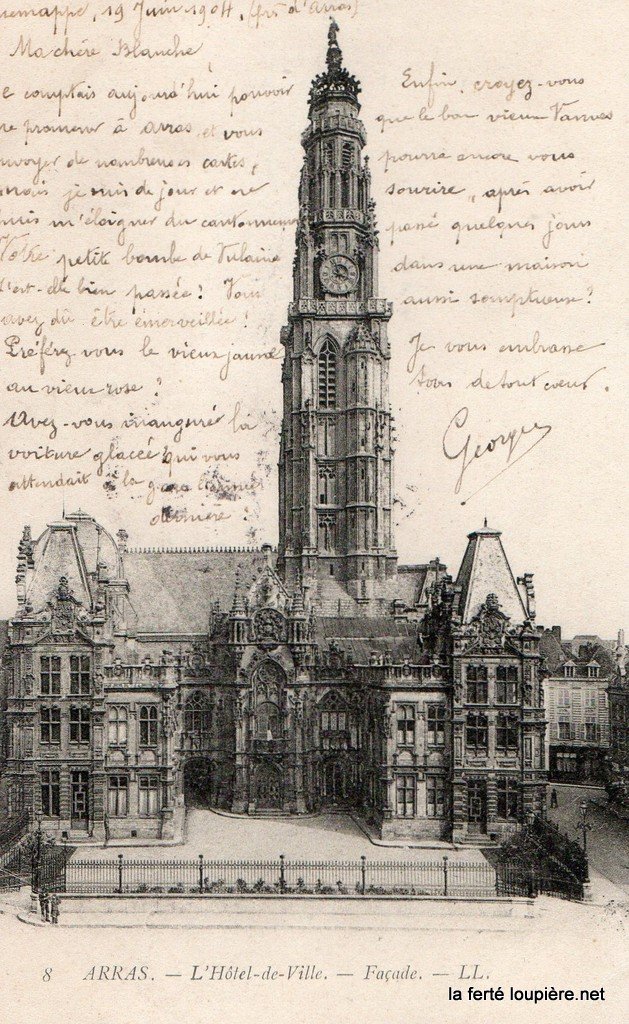 19 Juin 1904, (près d'Arras)
Ma chère Blanche,
comptais aujourd'hui pouvoir
promener à Arras, et vous
envoyer de nombreuses cartes,
mais je suis de jour et ne
puis m'éloigner du cantonnement
Votre petite bombe de
s'est-elle bien passée ? Vous
avez dû être émerveillée !
Préférez-vous le vieux jaune
au vieux rose ?
Avez-vous inauguré la
voiture glacée qui vous
attendait à la gare
dernière ?
Enfin, croyez-vous
que le bon vieux Vanves
pourra encore vous
sourire, après avoir
passé quelques jours
dans une maison
aussi somptueuse ?
Je vous embrasse
tous de tout cœur.
Georges
8 ARRAS. — L'Hôtel-de-Ville. — Façade. — LL.
la ferté loupière.net